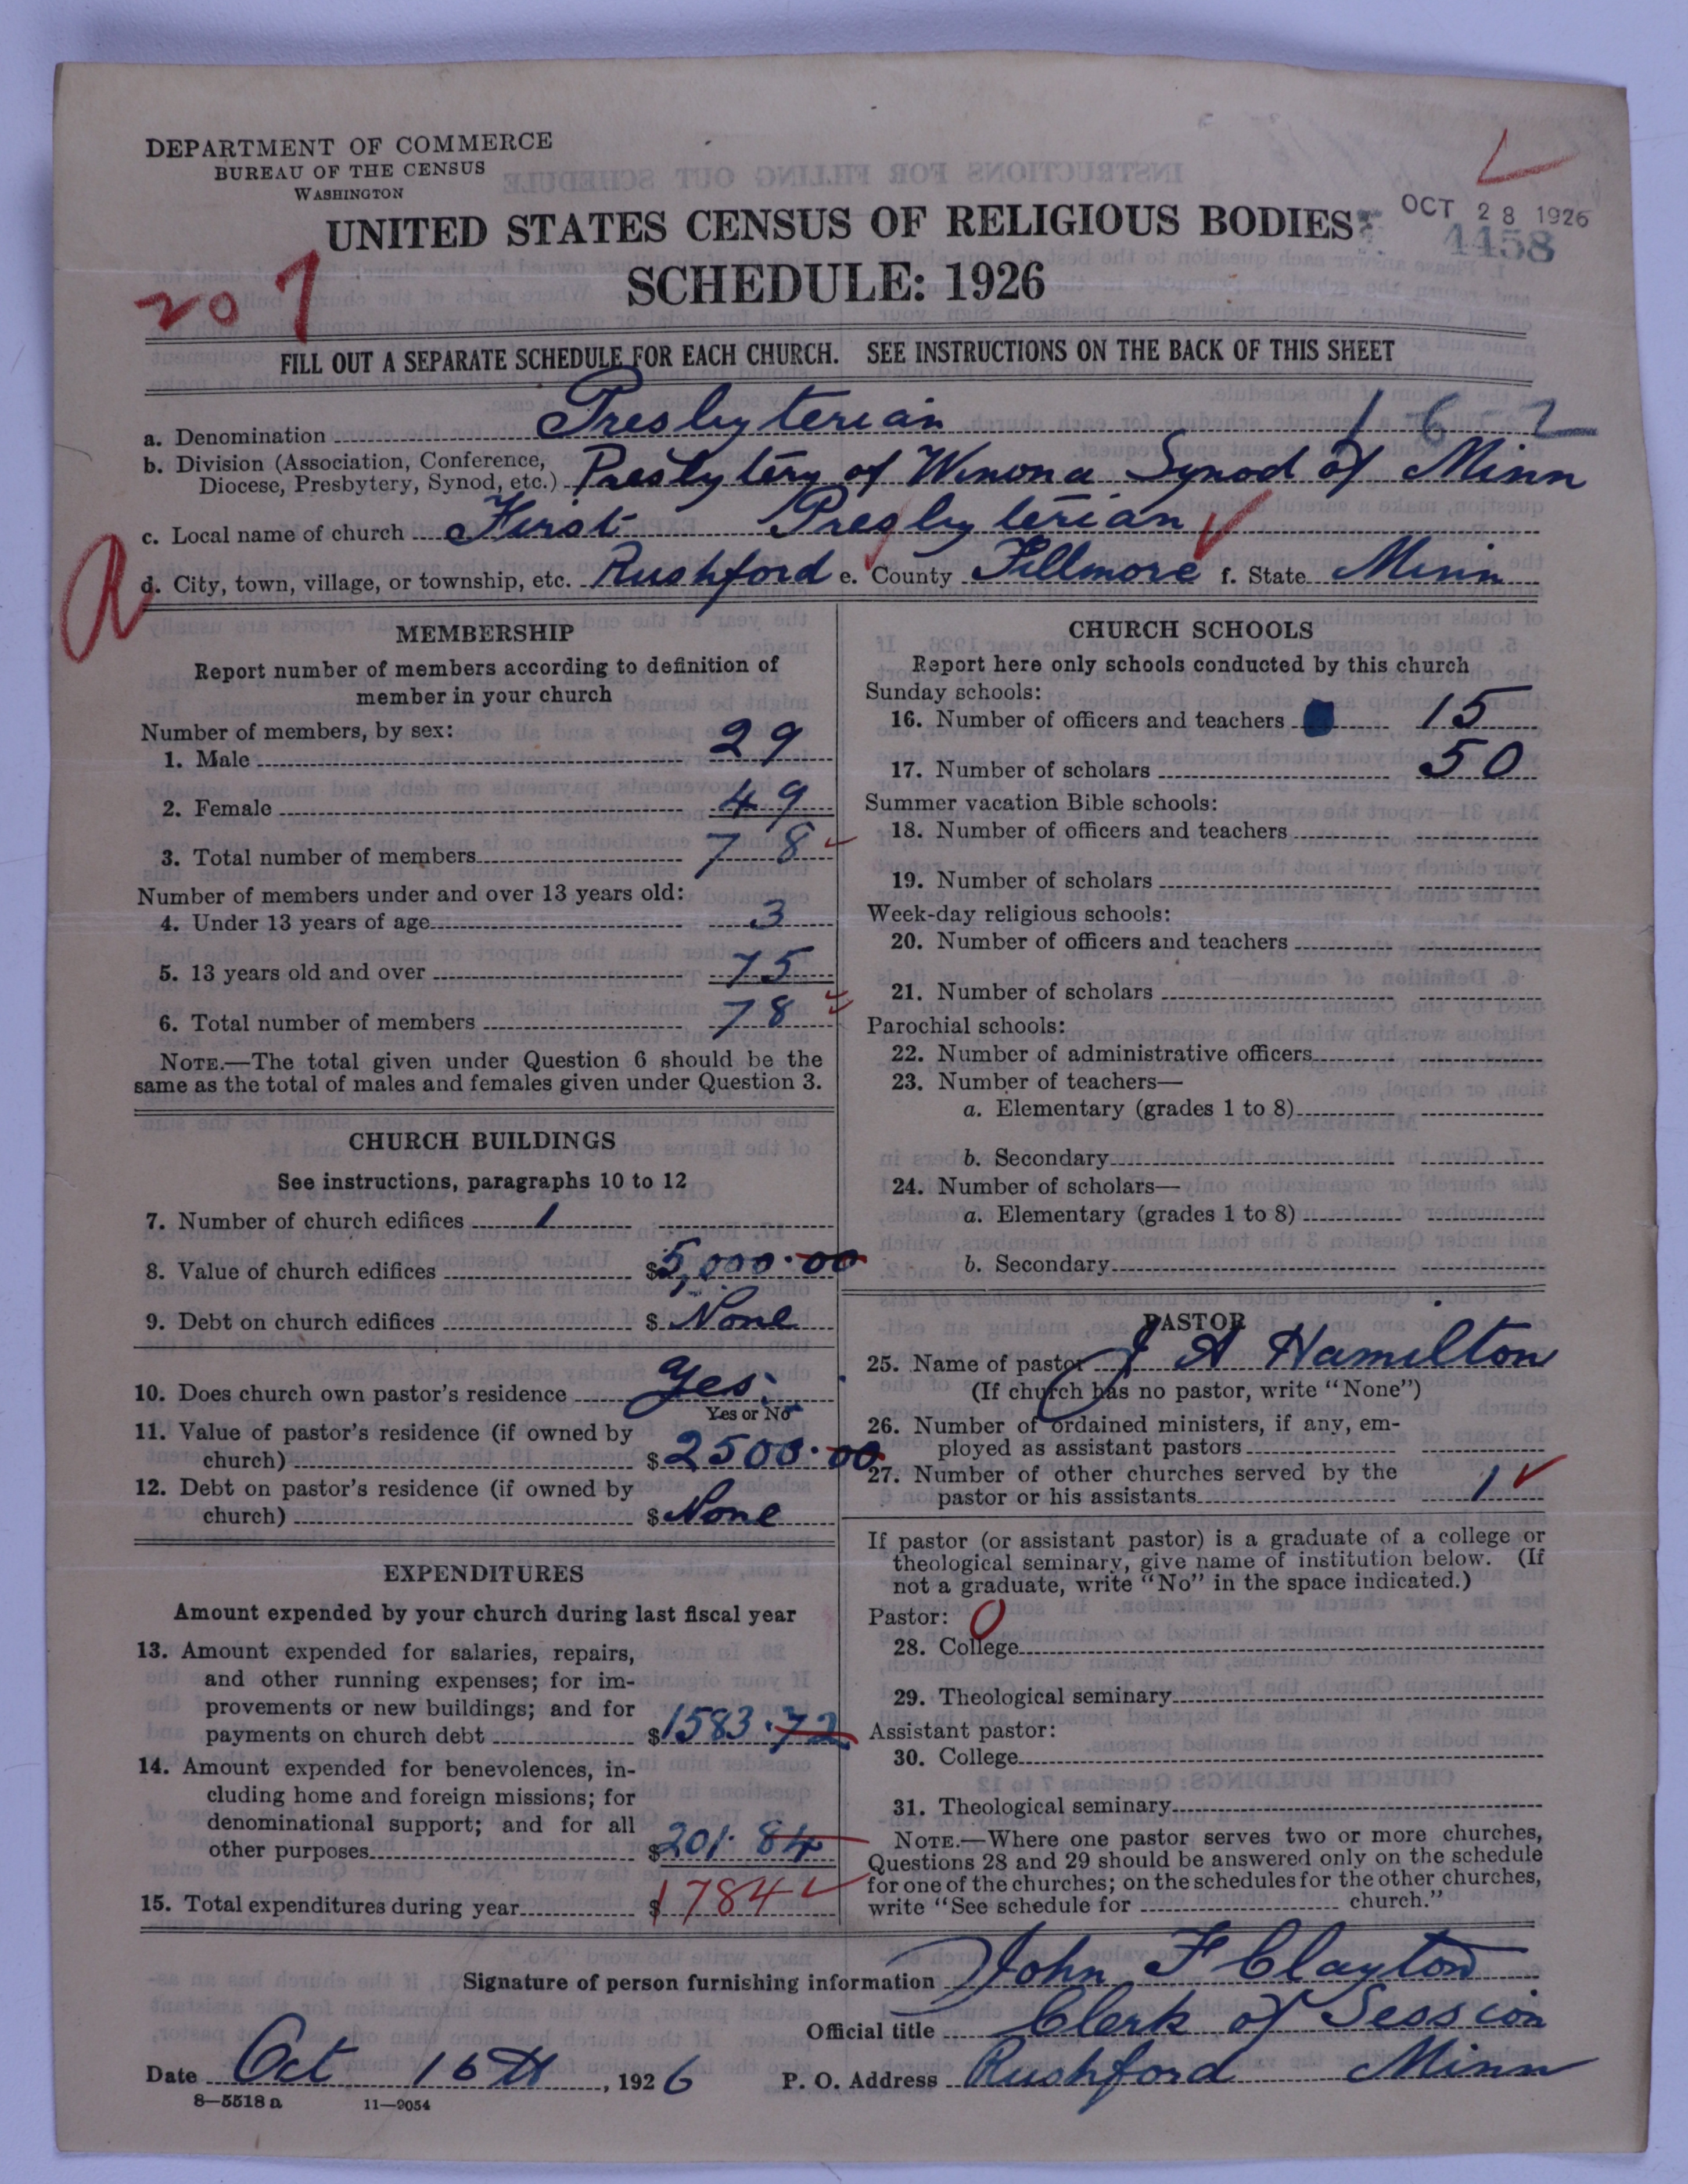 DEPARTMENT OF COMMERCE
BUREAU OF THE CENSUS
WASHINGTON
UNITED STATES CENSUS OF RELIGIOUS BODIES
OCT 28 1926
4458
SCHEDULE: 1926
207
FILL OUT A SEPARATE SCHEDULE FOR EACH CHURCH. SEE INSTRUCTIONS ON THE BACK OF THIS SHEET
a. Denomination Presbyterian 1 6 2
b. Division (Association, Conference,
Diocese, Presbytery, Synod, etc.) Presbytery of Winona Synod of Minn
c. Local name of church First Presbyterian
d. City, town, village, or township, etc. Rushford e. County Fillmore f. State Minn
MEMBERSHIP
Report number of members according to definition of
member in your church
Number of members, by sex:
1. Male 29
2. Female 49
3. Total number of members 78
Number of members under and over 13 years old:
4. Under 13 years of age 3
5. 13 years old and over 75
6. Total number of members 78
NOTE.—The total given under Question 6 should be the
same as the total of males and females given under Question 3.
CHURCH BUILDINGS
See instructions, paragraphs 10 to 12
7. Number of church edifices 1
8. Value of church edifices $5,000.00
9. Debt on church edifices $ None
10. Does church own pastor's residence Yes
Yes or No
11. Value of pastor's residence (if owned by
church) $2500.00
12. Debt on pastor's residence (if owned by
church) $ None
EXPENDITURES
Amount expended by your church during last fiscal year
13. Amount expended for salaries, repairs,
and other running expenses; for im-
provements or new buildings; and for
payments on church debt $1583.72
14. Amount expended for benevolences, in-
cluding home and foreign missions; for
denominational support; and for all
other purposes $201.84
15. Total expenditures during year $1784
CHURCH SCHOOLS
Report here only schools conducted by this church
Sunday schools:
16. Number of officers and teachers 15
17. Number of scholars 50
Summer vacation Bible schools:
18. Number of officers and teachers
19. Number of scholars
Week-day religious schools:
20. Number of officers and teachers
21. Number of scholars
Parochial schools:
22. Number of administrative officers
23. Number of teachers—
a. Elementary (grades 1 to 8)
b. Secondary
24. Number of scholars—
a. Elementary (grades 1 to 8)
b. Secondary
PASTOR
25. Name of pastor J A Hamilton
(If church has no pastor, write "None")
26. Number of ordained ministers, if any, em-
ployed as assistant pastors
27. Number of other churches served by the
pastor or his assistants 1
If pastor (or assistant pastor) is a graduate of a college or
theological seminary, give name of institution below. (If
not a graduate, write "No" in the space indicated.)
Pastor: 0
28. College
29. Theological seminary
Assistant pastor:
30. College
31. Theological seminary
NOTE.—Where one pastor serves two or more churches,
Questions 28 and 29 should be answered only on the schedule
for one of the churches; on the schedules for the other churches,
write "See schedule for church."
Signature of person furnishing information John F Clayton
Official title Clerk of Session
Date Oct 16th, 1926 P. O. Address Rushford Minn
8—5518 a 11—9054